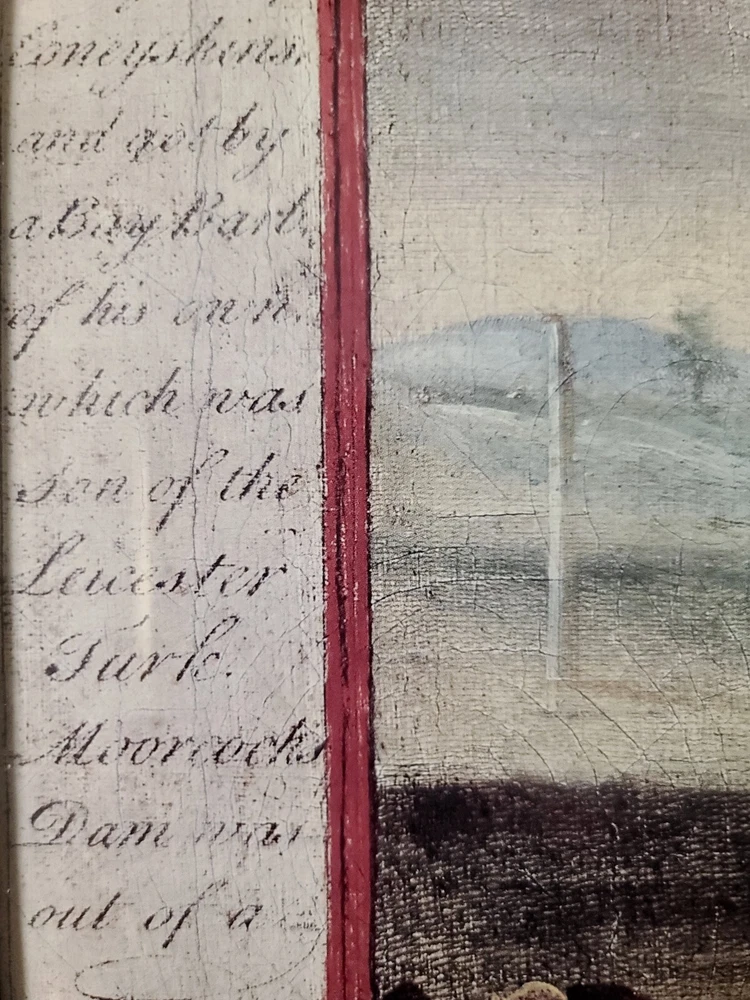 Coneyskins.
and got by
a Bay Barb.
of his own.
which was
son of the
Leicester
Turk.
Moorcocks
Dam was
out of a